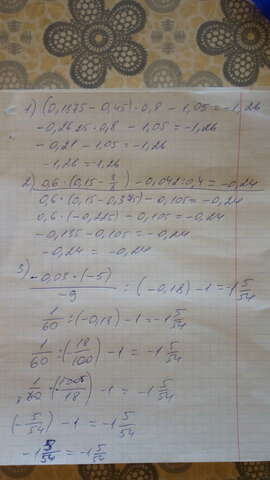 1) (0,1875 - 0,45) · 0,8 - 1,05 = -1,26
-0,2625 · 0,8 - 1,05 = -1,26
-0,21 - 1,05 = -1,26
-1,26 = -1,26
2) 0,6 · (0,15 - 3/8) - 0,042 : 0,4 = -0,24
0,6 · (0,15 - 0,375) - 0,105 = -0,24
0,6 · (-0,225) - 0,105 = -0,24
-0,135 - 0,105 = -0,24
-0,24 = -0,24
3) -0,03 · (-5) / -9 : (-0,18) - 1 = -1 5/54
1/60 : (-0,18) - 1 = -1 5/54
1/60 : (18/100) - 1 = -1 5/54
1/60 · ( /18) - 1 = -1 5/54
(-5/54) - 1 = -1 5/54
-1 5/54 = -1 5/54